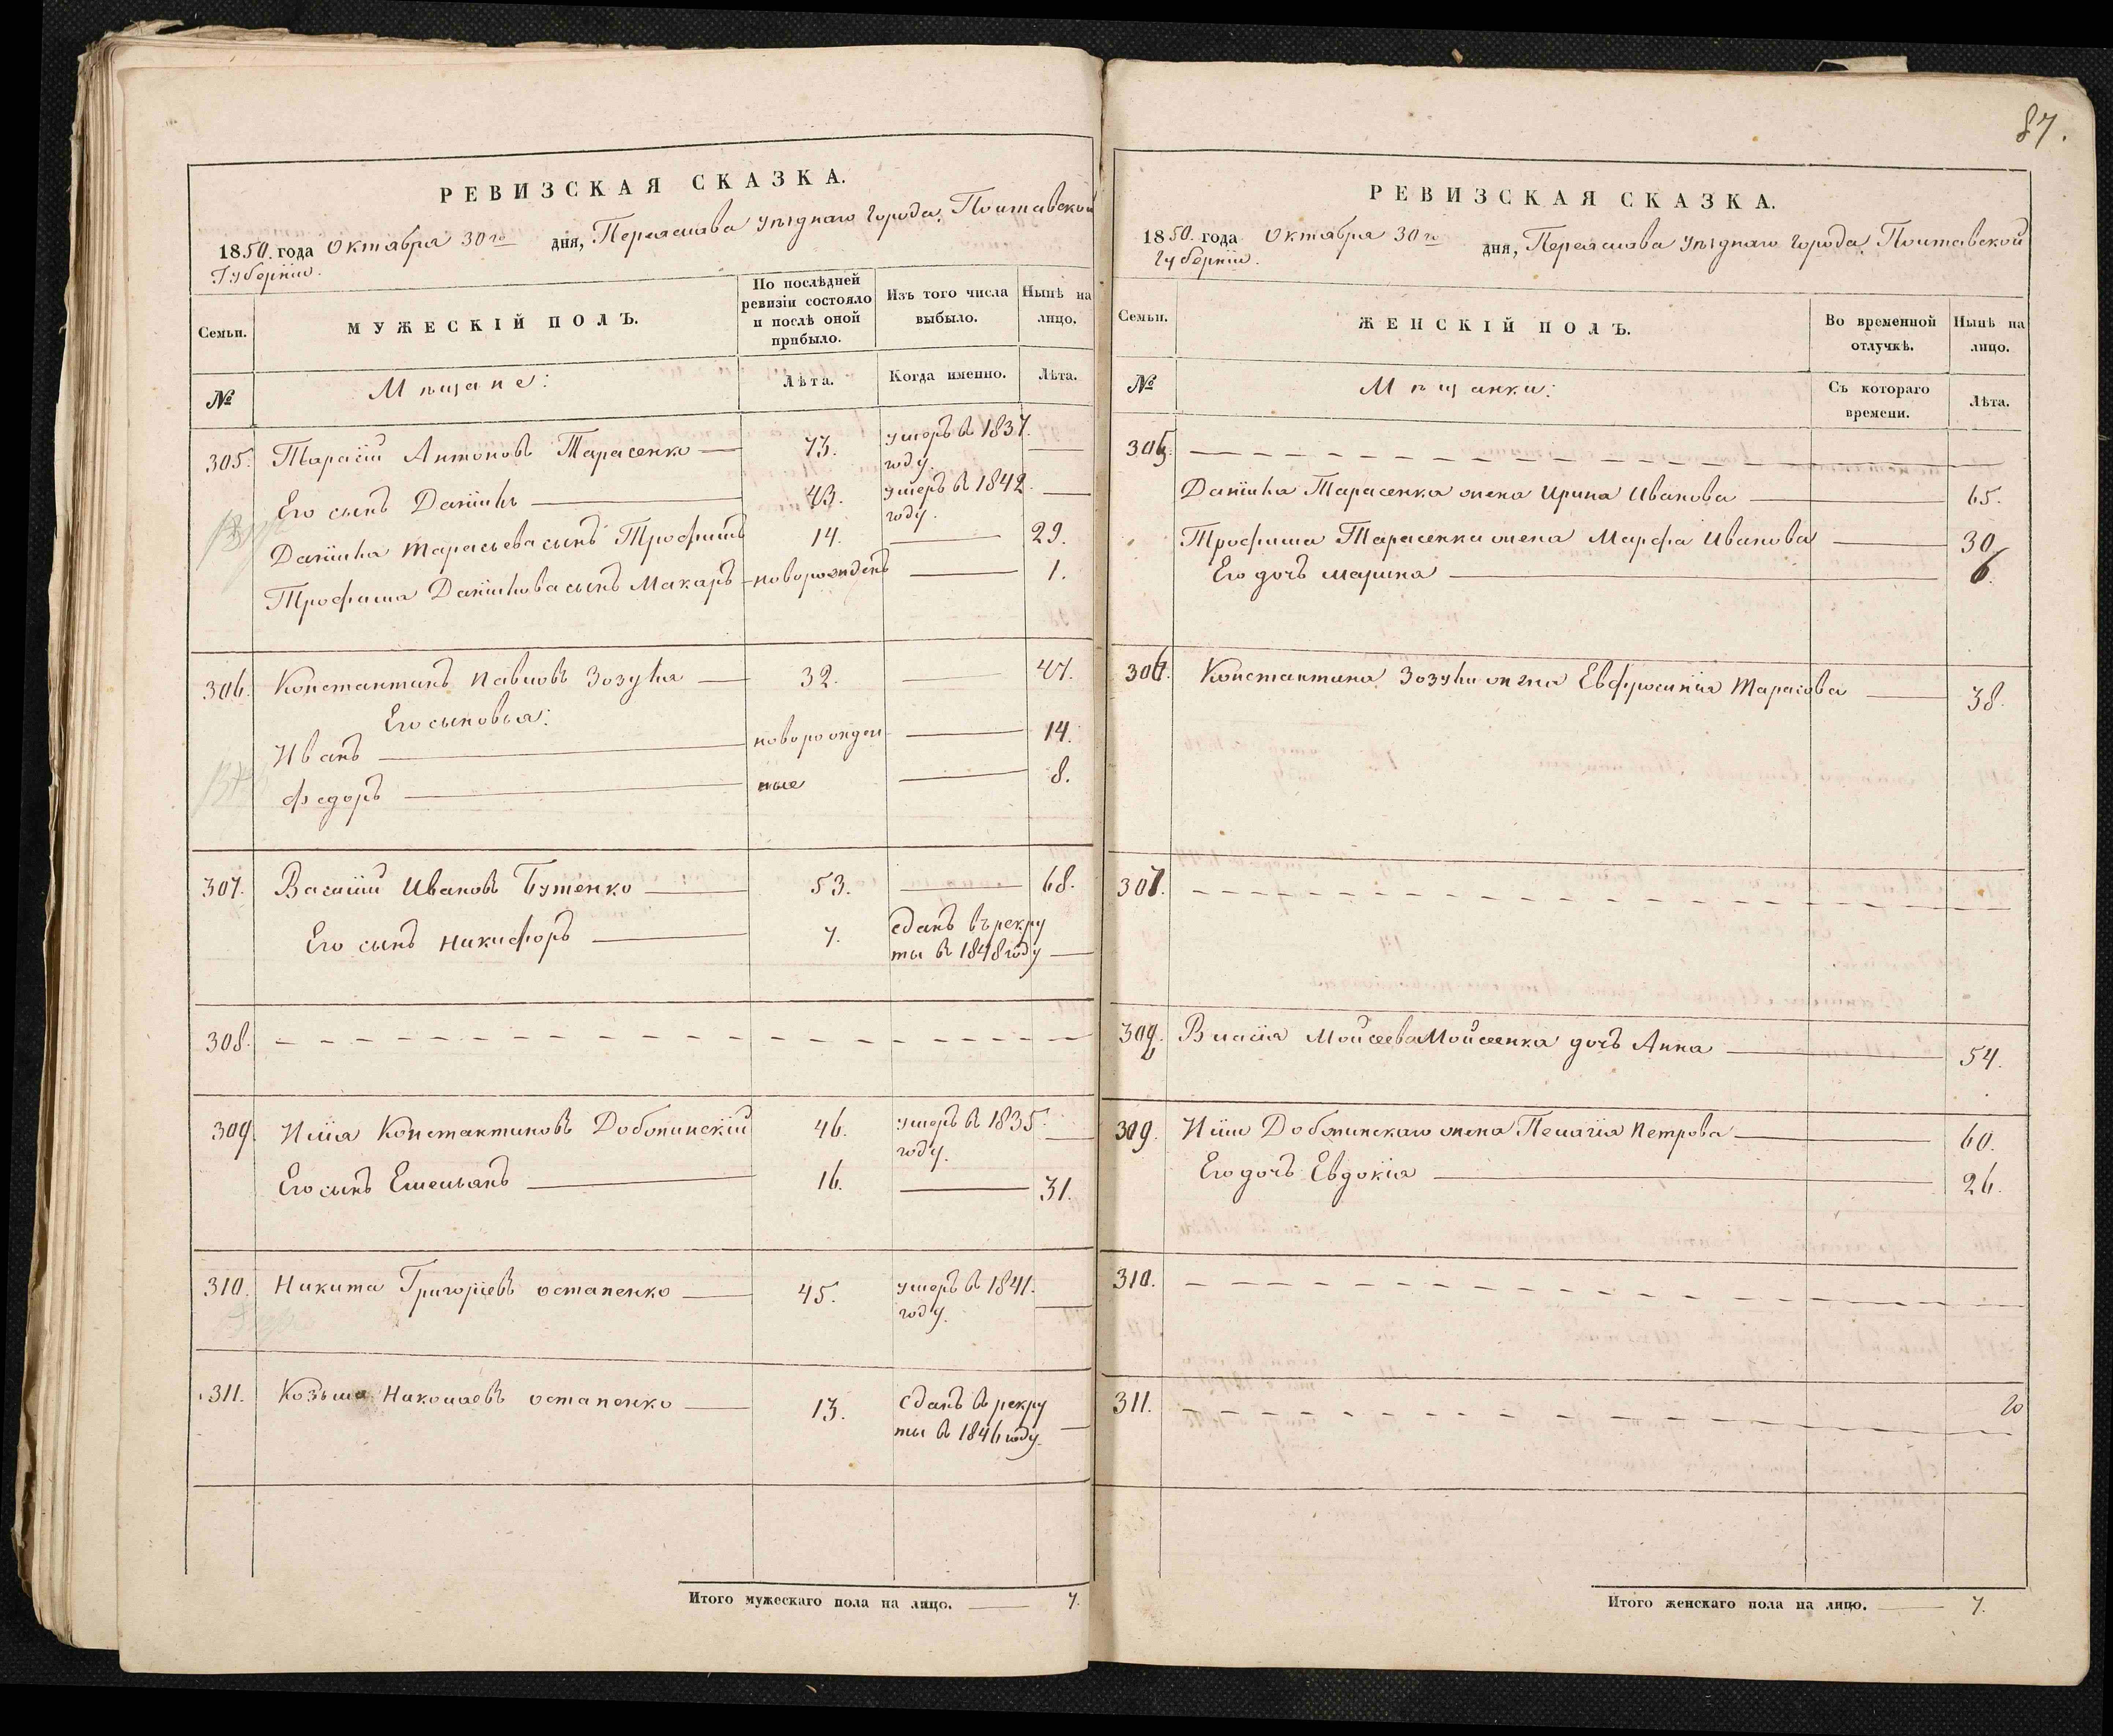 РЕВИЗСКАЯ СКАЗКА.
1850. года Октября 30го дня, Переяслава уѣзднаго города, Полтавской
Губерніи.
Семьи.
МУЖЕСКІЙ ПОЛЪ.
По послѣдней
ревизіи состояло
и послѣ оной
прибыло.
Изъ того числа
выбыло.
Нынѣ на
лицо.
№
Мѣщане:
Лѣта.
Когда именно.
Лѣта.
305. Тарасій Антоновъ Тарасенко 73. умеръ въ 1837.
году.
Его сынъ Даніилъ 43. умеръ въ 1842.
году.
Даніила Тарасьева сынъ Трофимъ 14. 29.
Трофима Данилова сынъ Макаръ новорожденъ 1.
306. Константинъ Павловъ Зозуля 32. 47.
Его сыновья:
Иванъ новорожден 14.
Федоръ ные 8.
307. Василій Ивановъ Бутенко 53. 68.
Его сынъ Никифоръ 7. сданъ въ рекру
ты въ 1848 году
308.
309. Илія Константиновъ Добопинскій 46. умеръ въ 1835.
году.
Его сынъ Емельянъ 16. 31.
310. Никита Григоріевъ Остапенко 45. умеръ въ 1841.
году.
311. Козьма Николаевъ Остапенко 13. Сданъ въ рекру
ты въ 1846 году.
Итого мужескаго пола на лицо. 7.
87.
РЕВИЗСКАЯ СКАЗКА.
1850. года Октября 30го дня, Переяслава уѣзднаго города, Полтавской
Губерніи.
Семьи.
ЖЕНСКІЙ ПОЛЪ.
Во временной
отлучкѣ.
Нынѣ на
лицо.
№
Мѣщанки:
Съ котораго
времени.
Лѣта.
305.
Даніила Тарасенка жена Ирина Иванова 65.
Трофима Тарасенка жена Марфа Иванова 30
Его дочь Марина 6.
306. Константина Зозули жена Евфросинія Тарасова 38.
307.
308. Власія Мойсеева Мойсеенка дочь Анна 54.
309. Иліи Добопинскаго жена Пелагія Петрова 60.
Его дочь Евдокія 26.
310.
311.
Итого женскаго пола на лицо. 7.